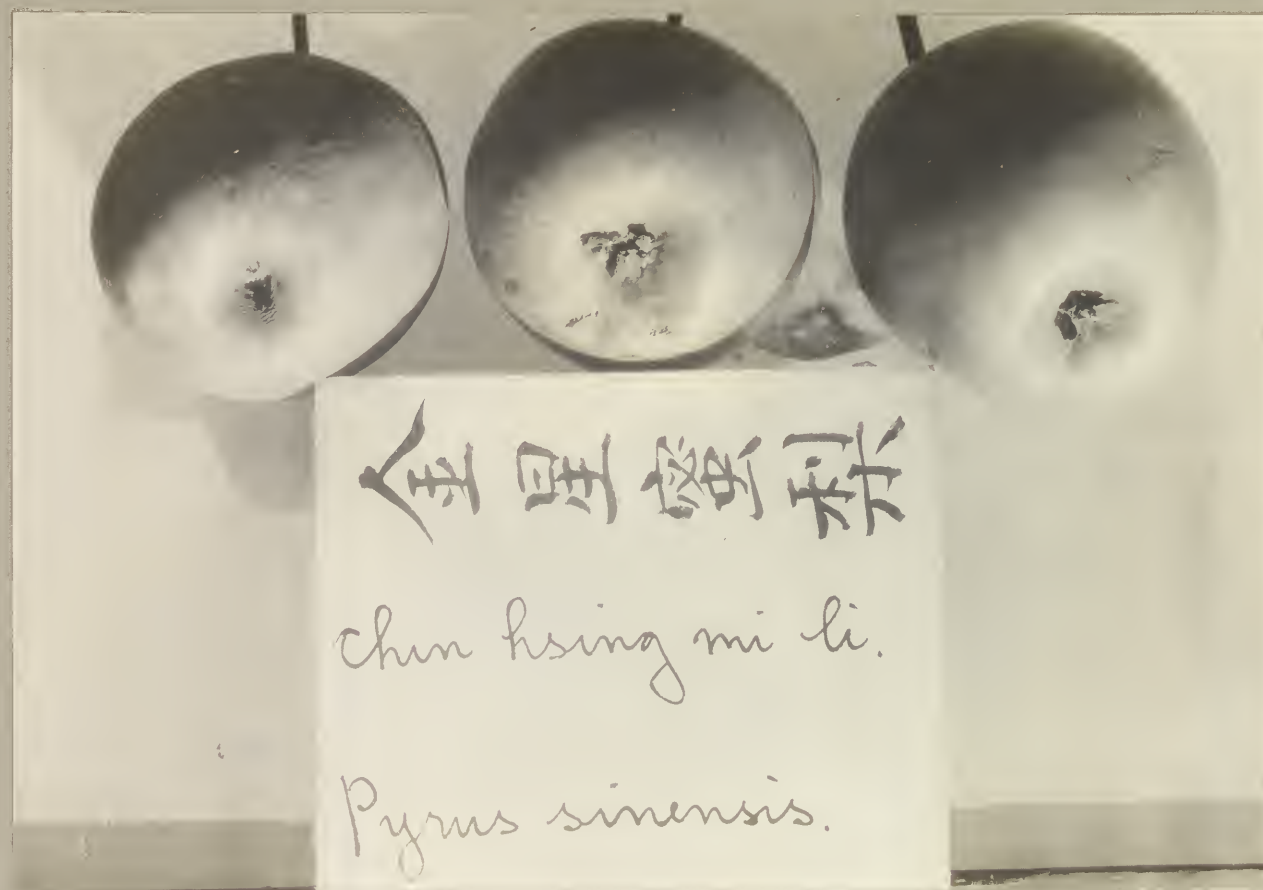 金星蜜梨
Chin hsing mi li.
Pyrus sinensis.